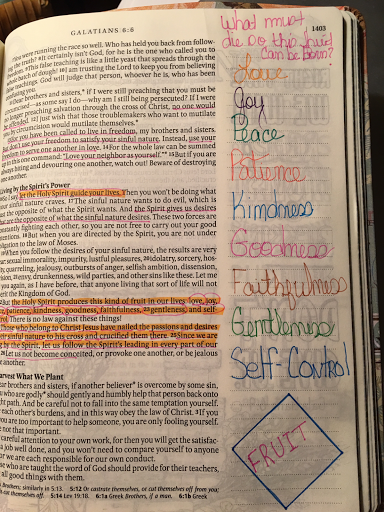 GALATIANS 6:6
1403
What must
die so this fruit
can be born?
Love
Joy
Peace
Patience
Kindness
Goodness
Faithfulness
Gentleness
Self-Control
FRUIT
were running the race so well. Who has held you back from follow-
the truth? 8It certainly isn't God, for he is the one who called you to
9This false teaching is like a little yeast that spreads through the
batch of dough! 10I am trusting the Lord to keep you from believing
false teachings. God will judge that person, whoever he is, who has been
brothers and sisters,* if I were still preaching that you must be
—as some say I do—why am I still being persecuted? If I were
longer preaching salvation through the cross of Christ, no one would
12I just wish that those troublemakers who want to mutilate
by circumcision would mutilate themselves.*
you have been called to live in freedom, my brothers and sisters.
don't use your freedom to satisfy your sinful nature. Instead, use your
freedom to serve one another in love. 14For the whole law can be summed
in this one command: "Love your neighbor as yourself."* 15But if you are
always biting and devouring one another, watch out! Beware of destroying
another.
Living by the Spirit's Power
I say, let the Holy Spirit guide your lives. Then you won't be doing what
sinful nature craves. 17The sinful nature wants to do evil, which is
the opposite of what the Spirit wants. And the Spirit gives us desires
that are the opposite of what the sinful nature desires. These two forces are
constantly fighting each other, so you are not free to carry out your good
18But when you are directed by the Spirit, you are not under
obligation to the law of Moses.
When you follow the desires of your sinful nature, the results are very
sexual immorality, impurity, lustful pleasures, 20idolatry, sorcery, hos-
quarreling, jealousy, outbursts of anger, selfish ambition, dissension,
21envy, drunkenness, wild parties, and other sins like these. Let me
you again, as I have before, that anyone living that sort of life will not
inherit the Kingdom of God.
But the Holy Spirit produces this kind of fruit in our lives: love, joy,
patience, kindness, goodness, faithfulness, 23gentleness, and self-
control. There is no law against these things!
Those who belong to Christ Jesus have nailed the passions and desires
their sinful nature to his cross and crucified them there. 25Since we are
by the Spirit, let us follow the Spirit's leading in every part of our
26Let us not become conceited, or provoke one another, or be jealous
one another.
Harvest What We Plant
brothers and sisters, if another believer* is overcome by some sin,
who are godly* should gently and humbly help that person back onto
right path. And be careful not to fall into the same temptation yourself.
each other's burdens, and in this way obey the law of Christ. 3If you
you are too important to help someone, you are only fooling yourself.
are not that important.
careful attention to your own work, for then you will get the satisfac-
a job well done, and you won't need to compare yourself to anyone
we are each responsible for our own conduct.
who are taught the word of God should provide for their teachers,
all good things with them.
Brothers; similarly in 5:13. 5:12 Or castrate themselves, or cut themselves off from you;
cut themselves off. 5:14 Lev 19:18. 6:1a Greek Brothers, if a man. 6:1b Greek